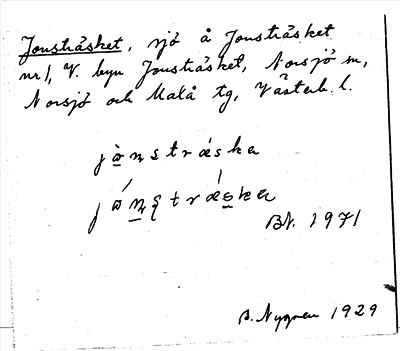 Jonsträsket, sjö å Jonsträsket
nr 1, V. byn Jonsträsket, Norsjö sn,
Norsjö och Malå tg, Västerb. l.
jònstrǽska
jón̲stræ̍s̲ka
BN. 1971
B. Nygren 1929